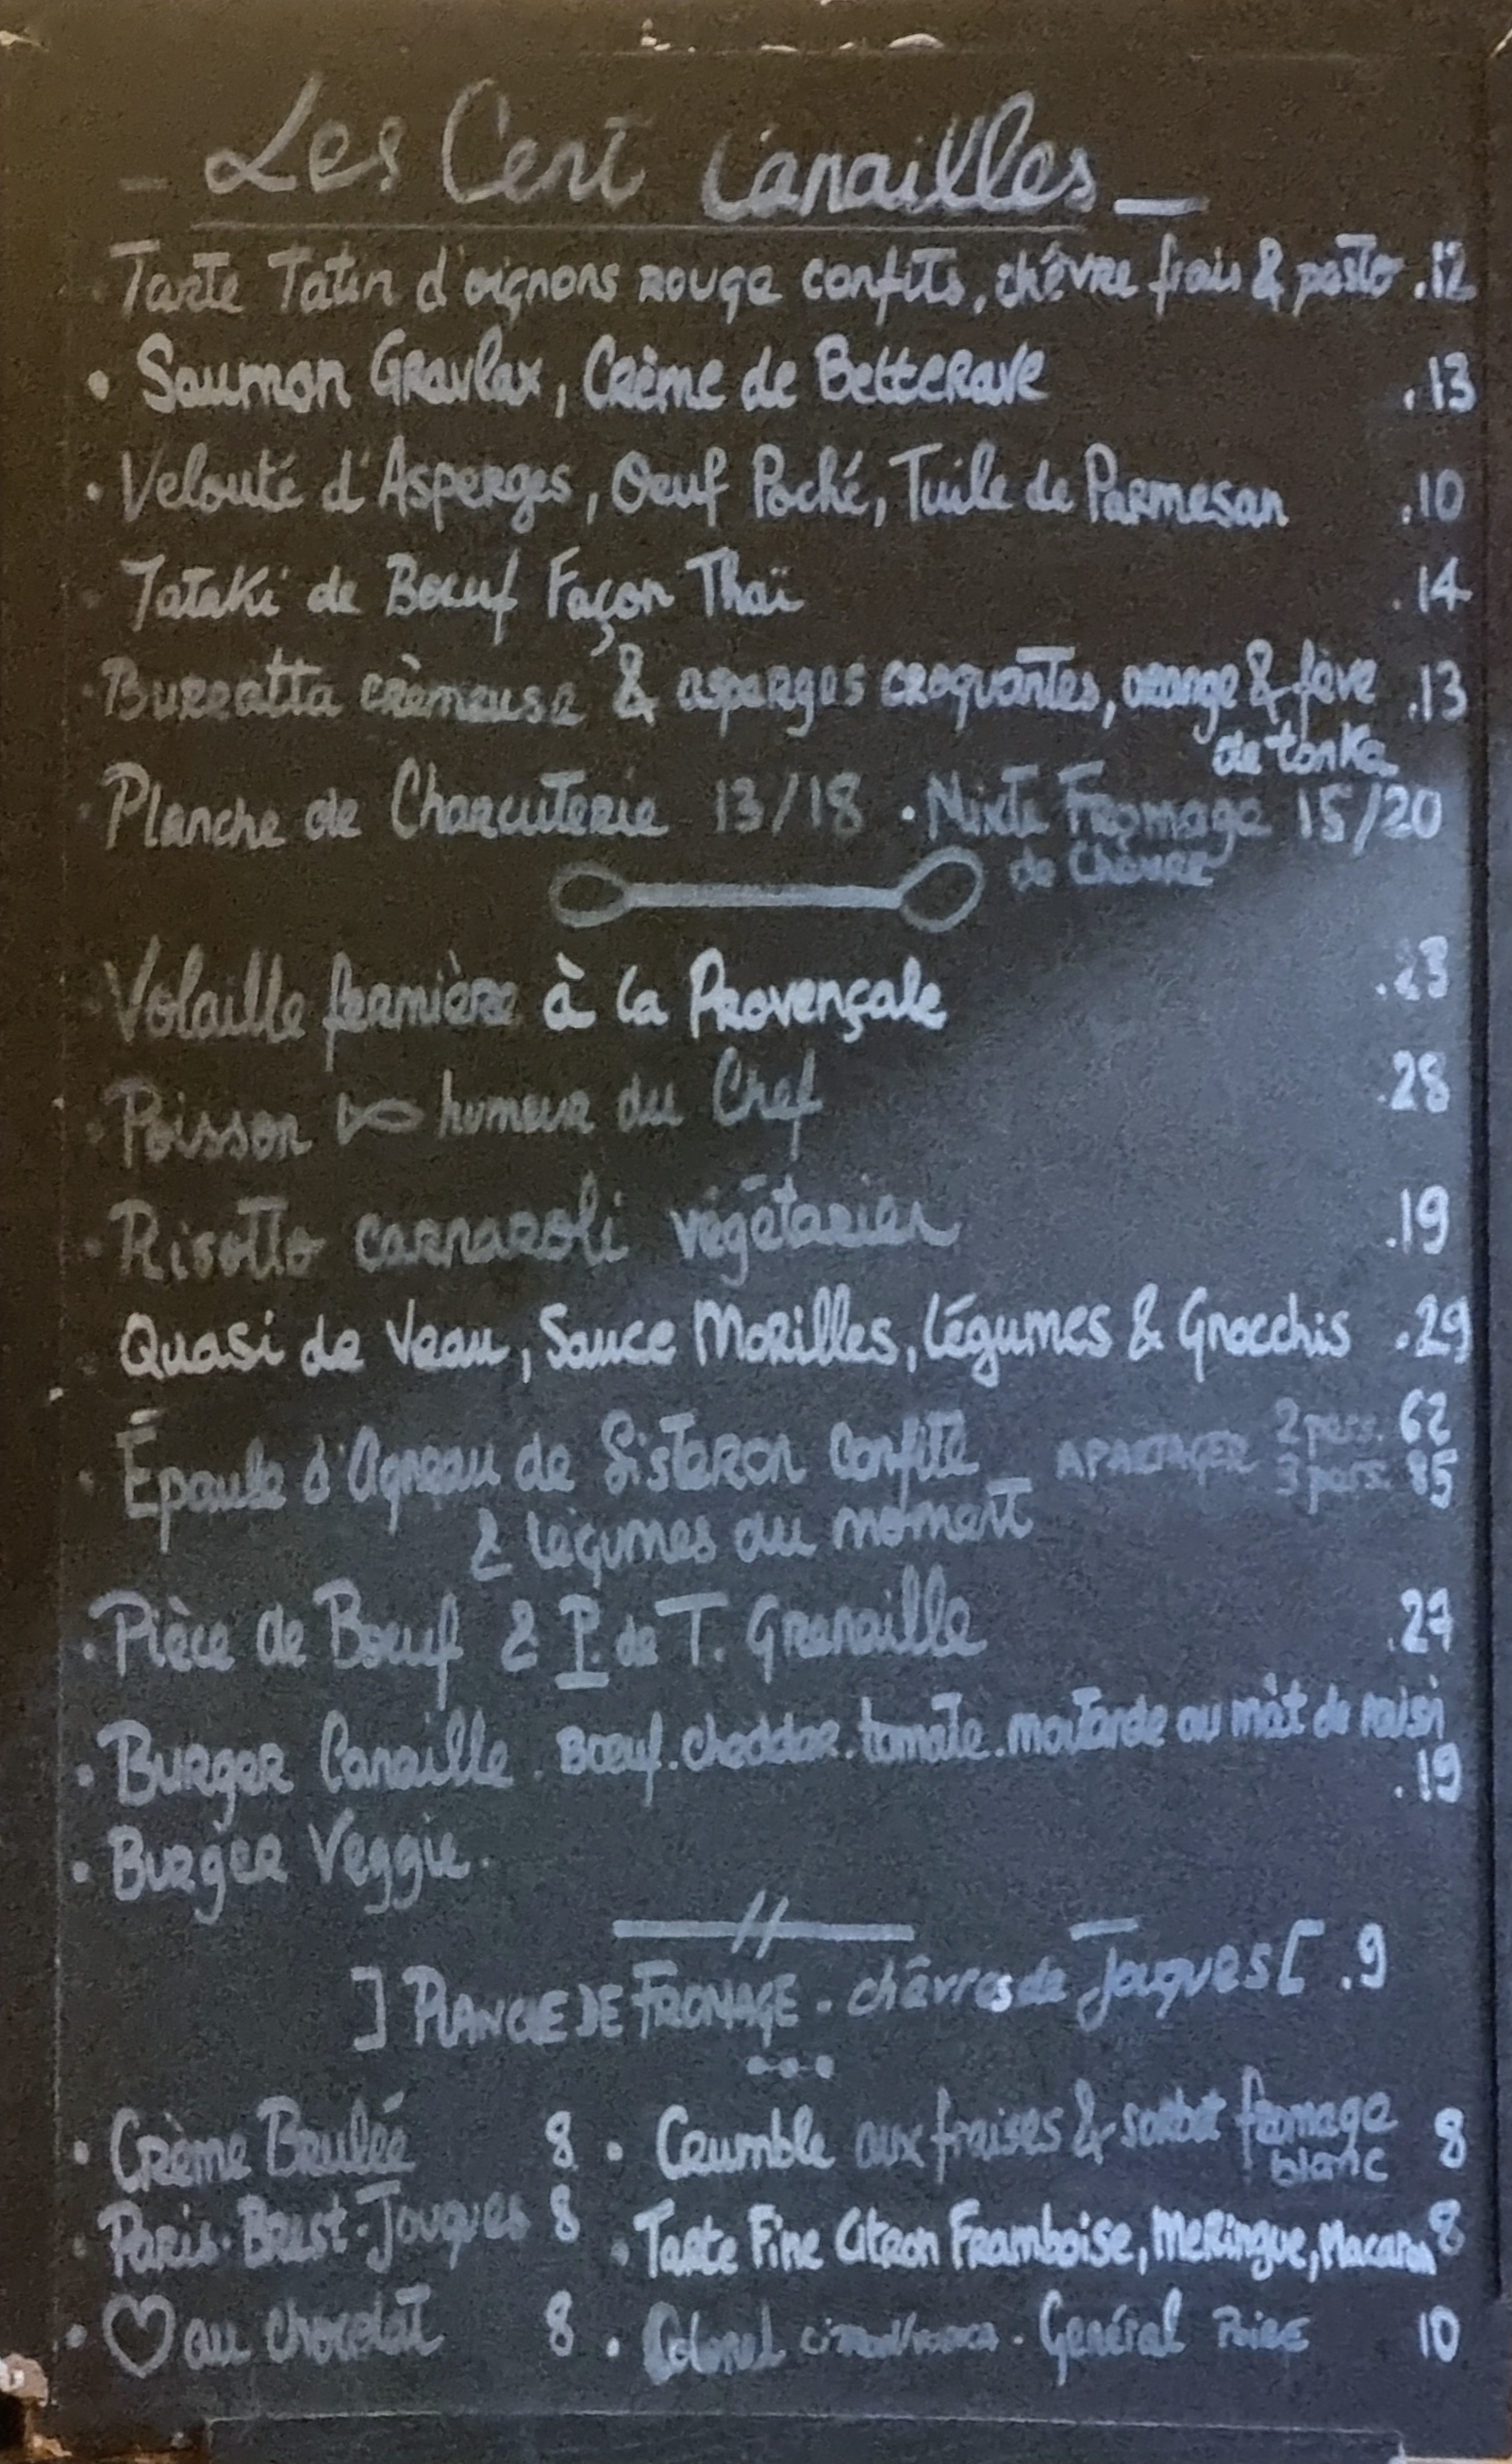 - Les Cent Canailles -
Tarte Tatin d'oignons rouge confits, chêvre frais & pesto .12
• Saumon Gravlax, Crème de Betterave .13
• Velouté d'Asperges, Oeuf Poché, Tuile de Parmesan .10
• Tataki de Boeuf Façon Thaï .14
• Burratta crèmeuse & asperges croquantes, orange & fève .13
de tonka
• Planche de Charcuterie 13/18 • Mixte Fromage 15/20
de Chèvre
• Volaille fermière à la Provençale .23
• Poisson humeur du Chef .28
• Risotto carnaroli végétarien .19
• Quasi de Veau, Sauce Morilles, Légumes & Gnocchis .29
• Épaule d'Agneau de Sisteron Confite _ A PARTAGER 2 pers. 62
3 pers. 85
& légumes du moment
• Pièce de Boeuf & P. de T. Grenaille .27
• Burger Canaille . Boeuf . cheddar . tomate . moutarde au mût de raisin
.19
• Burger Veggie .
] PLANCHE DE FROMAGE . chêvres de Jouques [ .9
• Crème Brulée 8 • Crumble aux fraises & sorbet fromage 8
blanc
• Paris-Brest-Jouques 8 • Tarte Fine Citron Framboise, Meringue, Macaron 8
• ♡ au chocolat 8 • Colonel citron/vodka . Général Poire 10